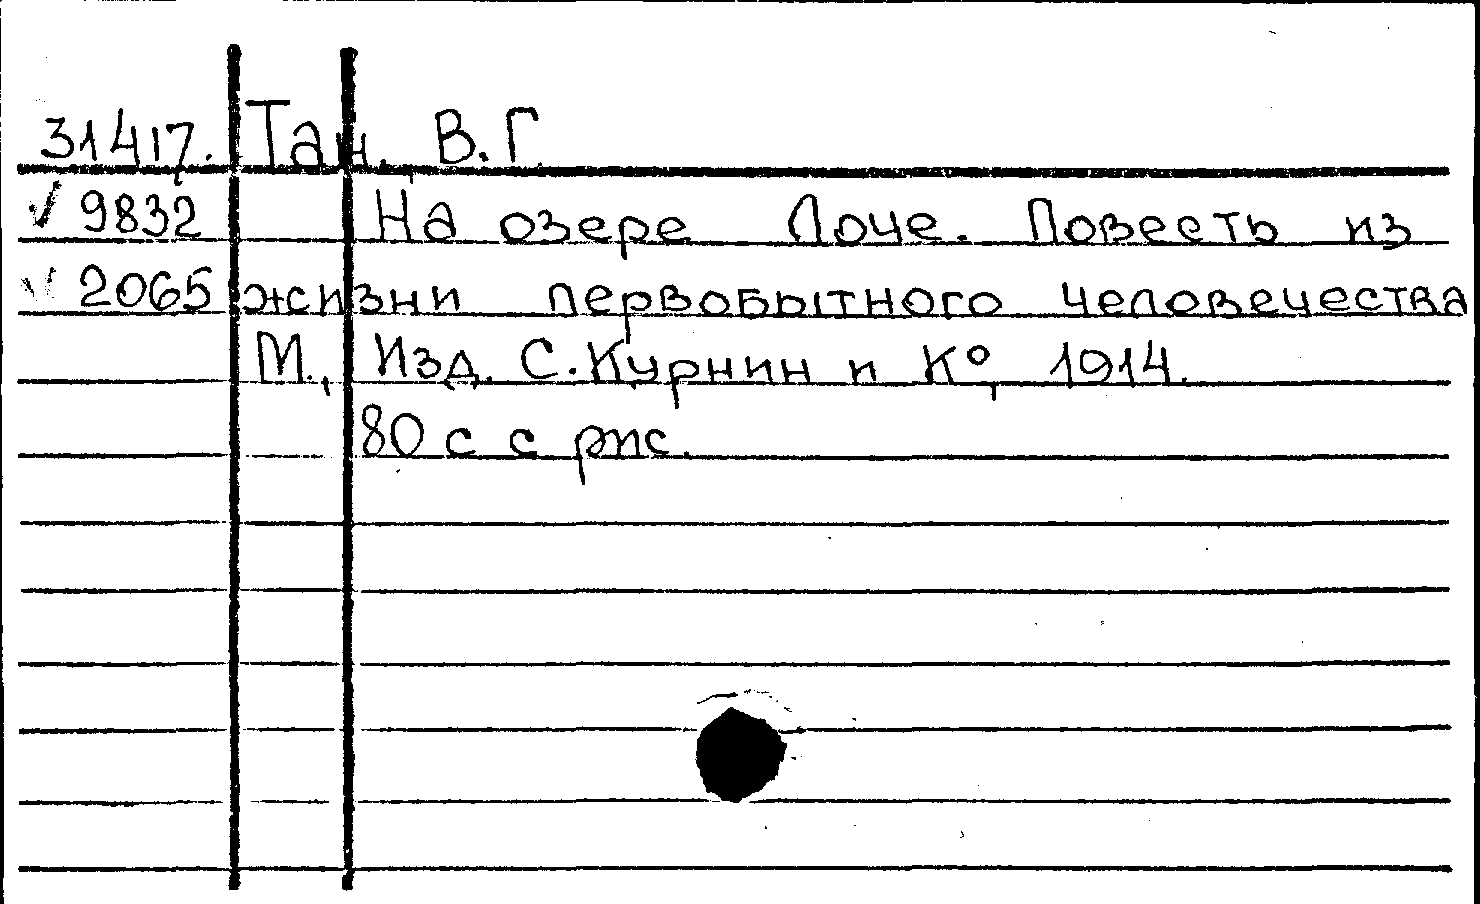 31417. Тан, В.Г.
✓ 9832 На озере Лоче. Повесть из
✓ 2065 жизни первобытного человечества
М., Изд. С. Курнин и К°, 1914.
80 с с рис.